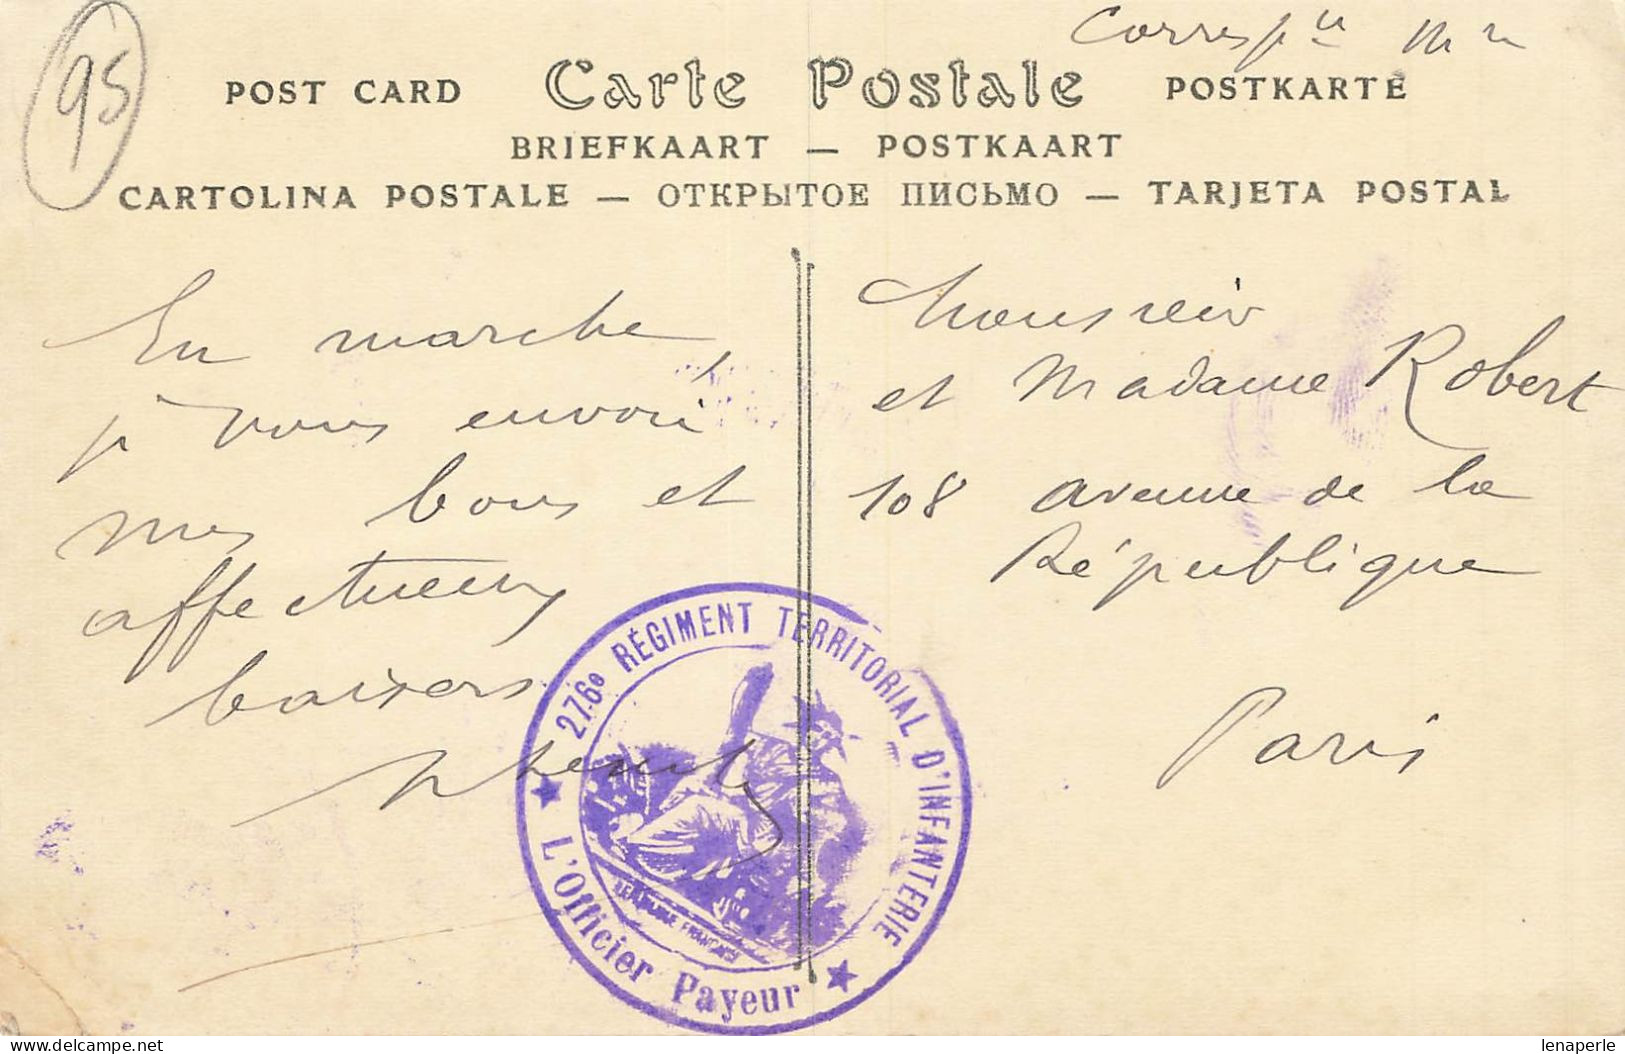 95
Corresp ce
POST CARD Carte Postale POSTKARTE
BRIEFKAART — POSTKAART
CARTOLINA POSTALE — ОТКРЫТОЕ ПИСЬМО — TARJETA POSTAL
En marche,
je vous envoie
mes bons et
affectueux
baisers
Monsieur
et Madame Robert
108 avenue de la
République
Paris
276e RÉGIMENT TERRITORIAL D'INFANTERIE
L'Officier Payeur
RÉPUBLIQUE FRANÇAISE
https://www.delcampe.net
lenaperle